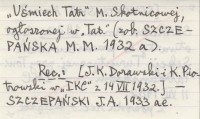 „Uśmiech Tatr” M. Skotnicowej,
ogłoszonej w „Tat.” (zob. SZCZE-
PAŃSKA M. M. 1932 a).
Rec.: [J.K. Dorawski i K. Pio-
trowski w „IKC” z 14 VII 1932.] —
SZCZEPAŃSKI J.A. 1933 ae.